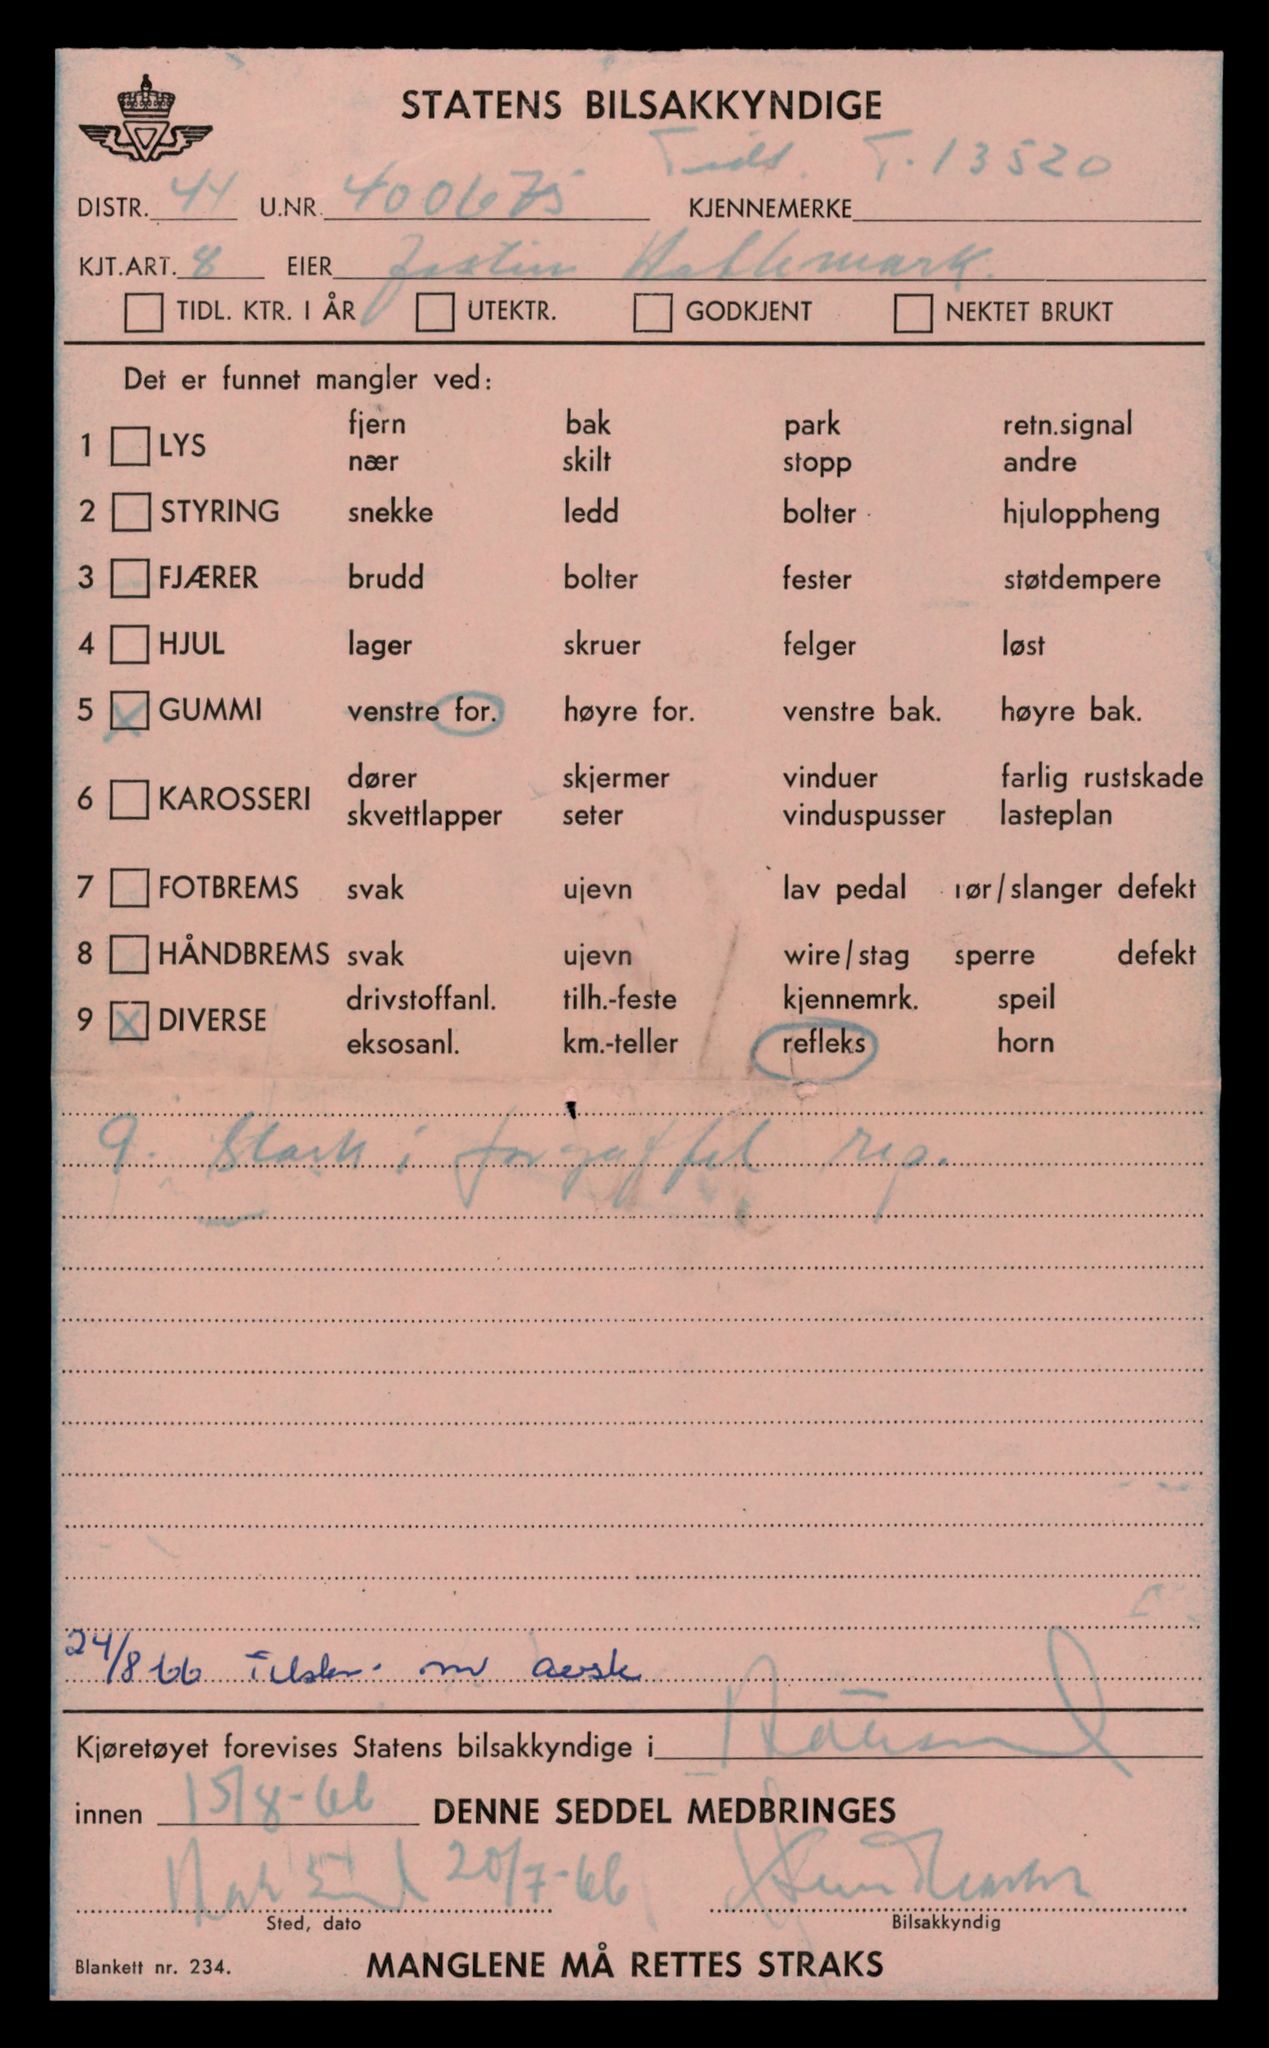 STATENS BILSAKKYNDIGE
Tidl. T-13520
DISTR. 44 U.NR. 400675 KJENNEMERKE
KJT.ART. 8 EIER Jostein
TIDL. KTR. I ÅR UTEKTR. GODKJENT NEKTET BRUKT
Det er funnet mangler ved:
fjern bak park retn.signal
1 LYS
nær skilt stopp andre
2 STYRING snekke ledd bolter hjuloppheng
3 FJÆRER brudd bolter fester støtdempere
4 HJUL lager skruer felger løst
5 X GUMMI venstre for. høyre for. venstre bak. høyre bak.
dører skjermer vinduer farlig rustskade
6 KAROSSERI
skvettlapper seter vinduspusser lasteplan
7 FOTBREMS svak ujevn lav pedal rør/slanger defekt
8 HÅNDBREMS svak ujevn wire/stag sperre defekt
drivstoffanl. tilh.-feste kjennemrk. speil
9 X DIVERSE
eksosanl. km.-teller refleks horn
9. Slark i forgaffel rep.
24/8 66 Tilskr.
Kjøretøyet forevises Statens bilsakkyndige i
innen 15/8-66 DENNE SEDDEL MEDBRINGES
20/7-66
Sted, dato Bilsakkyndig
Blankett nr. 234. MANGLENE MÅ RETTES STRAKS